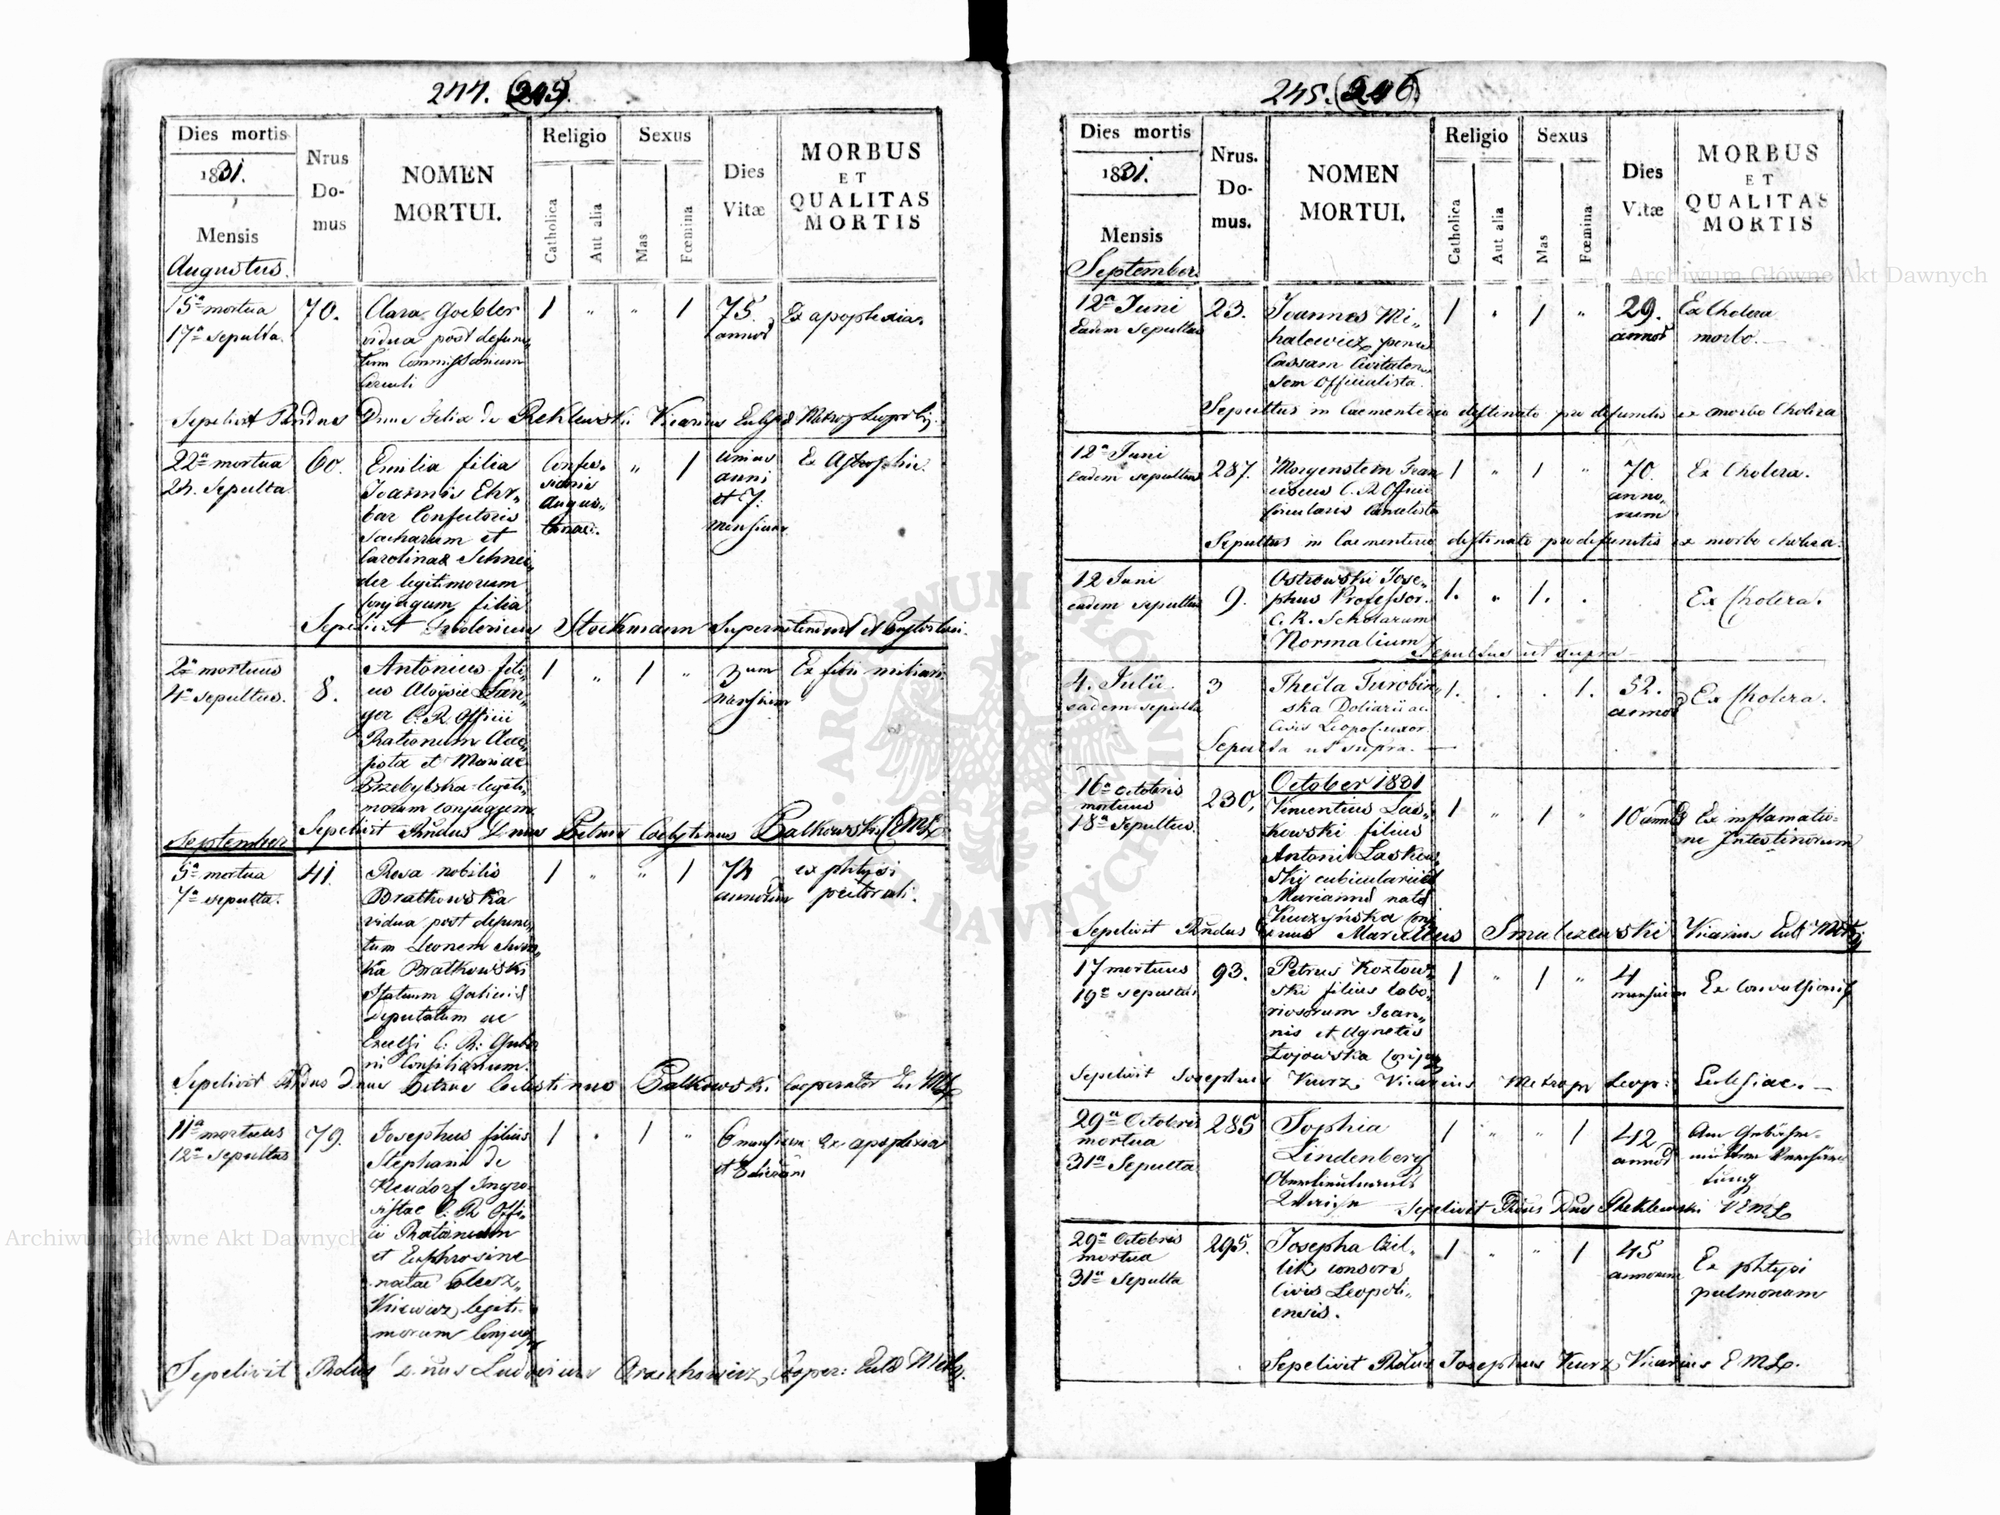 244. (245).
Dies mortis
1831.
Mensis
Augustus.
Nrus
Do-
mus
NOMEN
MORTUI.
Religio
Catholica
Aut alia
Sexus
Mas
Fœmina
Dies
Vitæ
MORBUS
ET
QUALITAS
MORTIS
15a mortua
17a sepulta.
70.
Clara Goebler
vidua post defunc-
tum Commissarium
Circuli
1 " " 1
75.
annor
Ex apoplexia.
Sepelivit Rndus Dnus Felix de Reklewski Vicarius Eccl Metrop Leopol
22a mortua
23. Sepulta
60.
Emilia filia
Joannis Ehr-
bar Confectoris
Sacharum et
Carolinae Schnei-
der legitimorum
Conjugum filia
Confes-
sionis
Augus-
tanae.
" 1
unius
anni
et 7.
Mensium
Ex Atrophia.
Sepelivit Fridericus Stockmann Superintendent
2a mortuus
4a sepultus.
8.
Antonius fili-
us Aloysii
C. R. Officii
Rationum
et Mariae
Przybylska legiti-
morum conjugum
1 " 1 "
3um
Mensium
Ex febri miliari
Sepelivit Rndus Dnus Petrus Coelestinus Balkowski CEML
September
5a mortua
7a sepulta.
41.
Rosa nobilis
Bratkowska
vidua post defunc-
tum Leonem
Bratkowski
Statuum Galiciae
Deputatum ac
Excelsi C: R: Guber
nii Consiliarium.
1 " " 1
74
annorum
ex phtysi
pectorali.
Sepelivit Rndus Dnus Petrus Coelestinus Balkowski Cooperator
11a mortuus
12a sepultus
79.
Josephus filius
Stephani de
Neudorf Ingro-
sistae C. R. Offi-
cii Rationum
et Euphrosine
natae
legiti-
morum Conjugum
1 " 1 "
6 mensium
et dierum
Ex apoplexia
Sepelivit Rndus Dnus Ludovicus Cooper: Eccl Metr.
245. (246)
Dies mortis
1831.
Mensis
September
Nrus.
Do-
mus.
NOMEN
MORTUI.
Religio
Catholica
Aut alia
Sexus
Mas
Fœmina
Dies
Vitæ
MORBUS
ET
QUALITAS
MORTIS
12a Juni
Eadem Sepultus
23.
Joannes Mi-
halewicz penes
Cassam Civitaten-
sem Officialista.
1 " 1 "
29.
annor
Ex Cholera
morbo.
Sepultus in Caementerio destinato pro defunctis ex morbo Cholera
12a Juni
Eadem sepultus
287.
Morgenstern Fran
ciscus C. R. Officii
Circularis Cancelista
1 " 1 "
70.
anno-
rum
Ex Cholera.
Sepultus in Caementerio destinato pro defunctis ex morbo cholera.
12 Juni
eadem sepultus
9.
Ostrowski Jose-
phus Professor
C. R. Scholarum
Normalium
1. " 1. .
Ex Cholera.
Sepultus ut supra
4. Julii
eadem sepulta
3
Thecla Turobin-
ska Doliarii ac
Civis Leopol: uxor
1. . . 1.
52.
annor
Ex Cholera.
Sepulta ut supra.
16a octobris
mortuus
18a Sepultus.
230.
October 1831
Vincentius Las-
kowski filius
Antoni Laskow-
ski cubicularii et
Marianna nata
Kuczyńska
1 " 1 "
10 annor
Ex inflamatio-
ne Intestinorum
Sepelivit Rndus Dnus Marcellus Smalczewski Vicarius Eccl Metr
17 mortuus
19a sepultus
93.
Petrus Kozłow-
ski filius labo-
riosorum Joan-
nis et Agnetis
Łojowska Conjug
1 " 1 "
4
mensium
Ex Convulsionis
Sepelivit Josephus Kurz Vicarius Metrop Leop: Ecclesiae.
29a Octobris
mortua
31a Sepulta
285
Sophia
Lindenberg
Oberlieutenants
1 " " 1
42
annor
Am Gebähr-
mutter
tung
Sepelivit Rdus Dnus Reklewski VEML
29a Octobris
mortua
31a Sepulta
295.
Josepha
consors
Civis Leopoli-
ensis.
1 " " 1
45
annorum
Ex phtysi
pulmonum
Sepelivit Rdus Josephus Kurz Vicarius EML.
Archiwum Główne Akt Dawnych
Archiwum Główne Akt Dawnych
ARCHIWUM GŁÓWNE AKT DAWNYCH